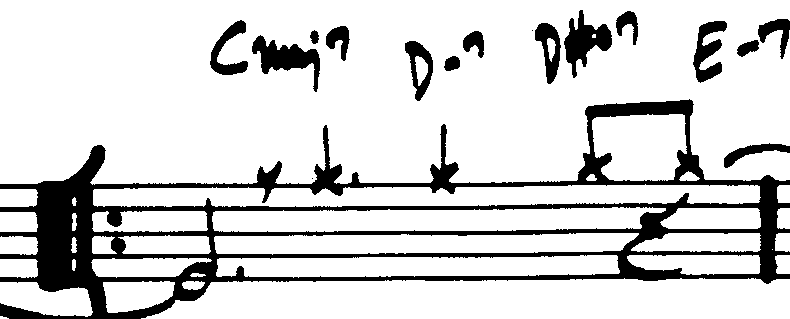 Cmaj7 D-7 D#°7 E-7